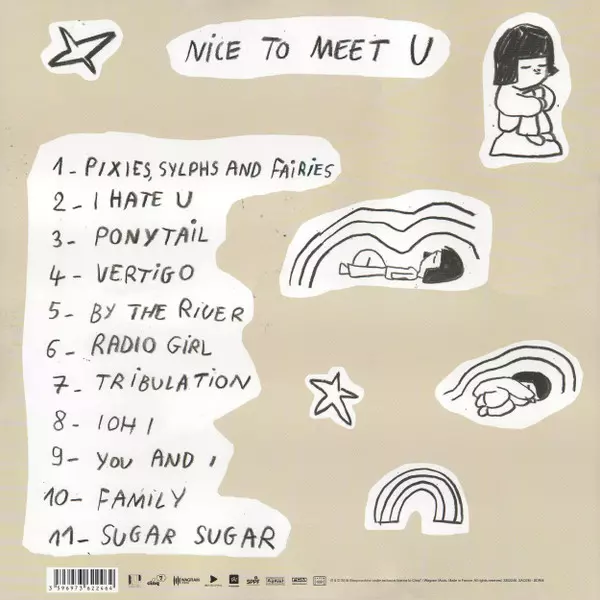 NiCE TO MEET U
1 - PIXIES, SYLPHS AND FAiRiES
2 - I HATE U
3 - PONYTAIL
4 - VERTiGO
5 - BY THE RiVER
6 - RADIO GiRL
7 - TRiBULATION
8 - IOHI
9 - YOU AND I
10 - FAMILY
11 - SUGAR SUGAR
3 596973 622464
WAGRAM
SPPF